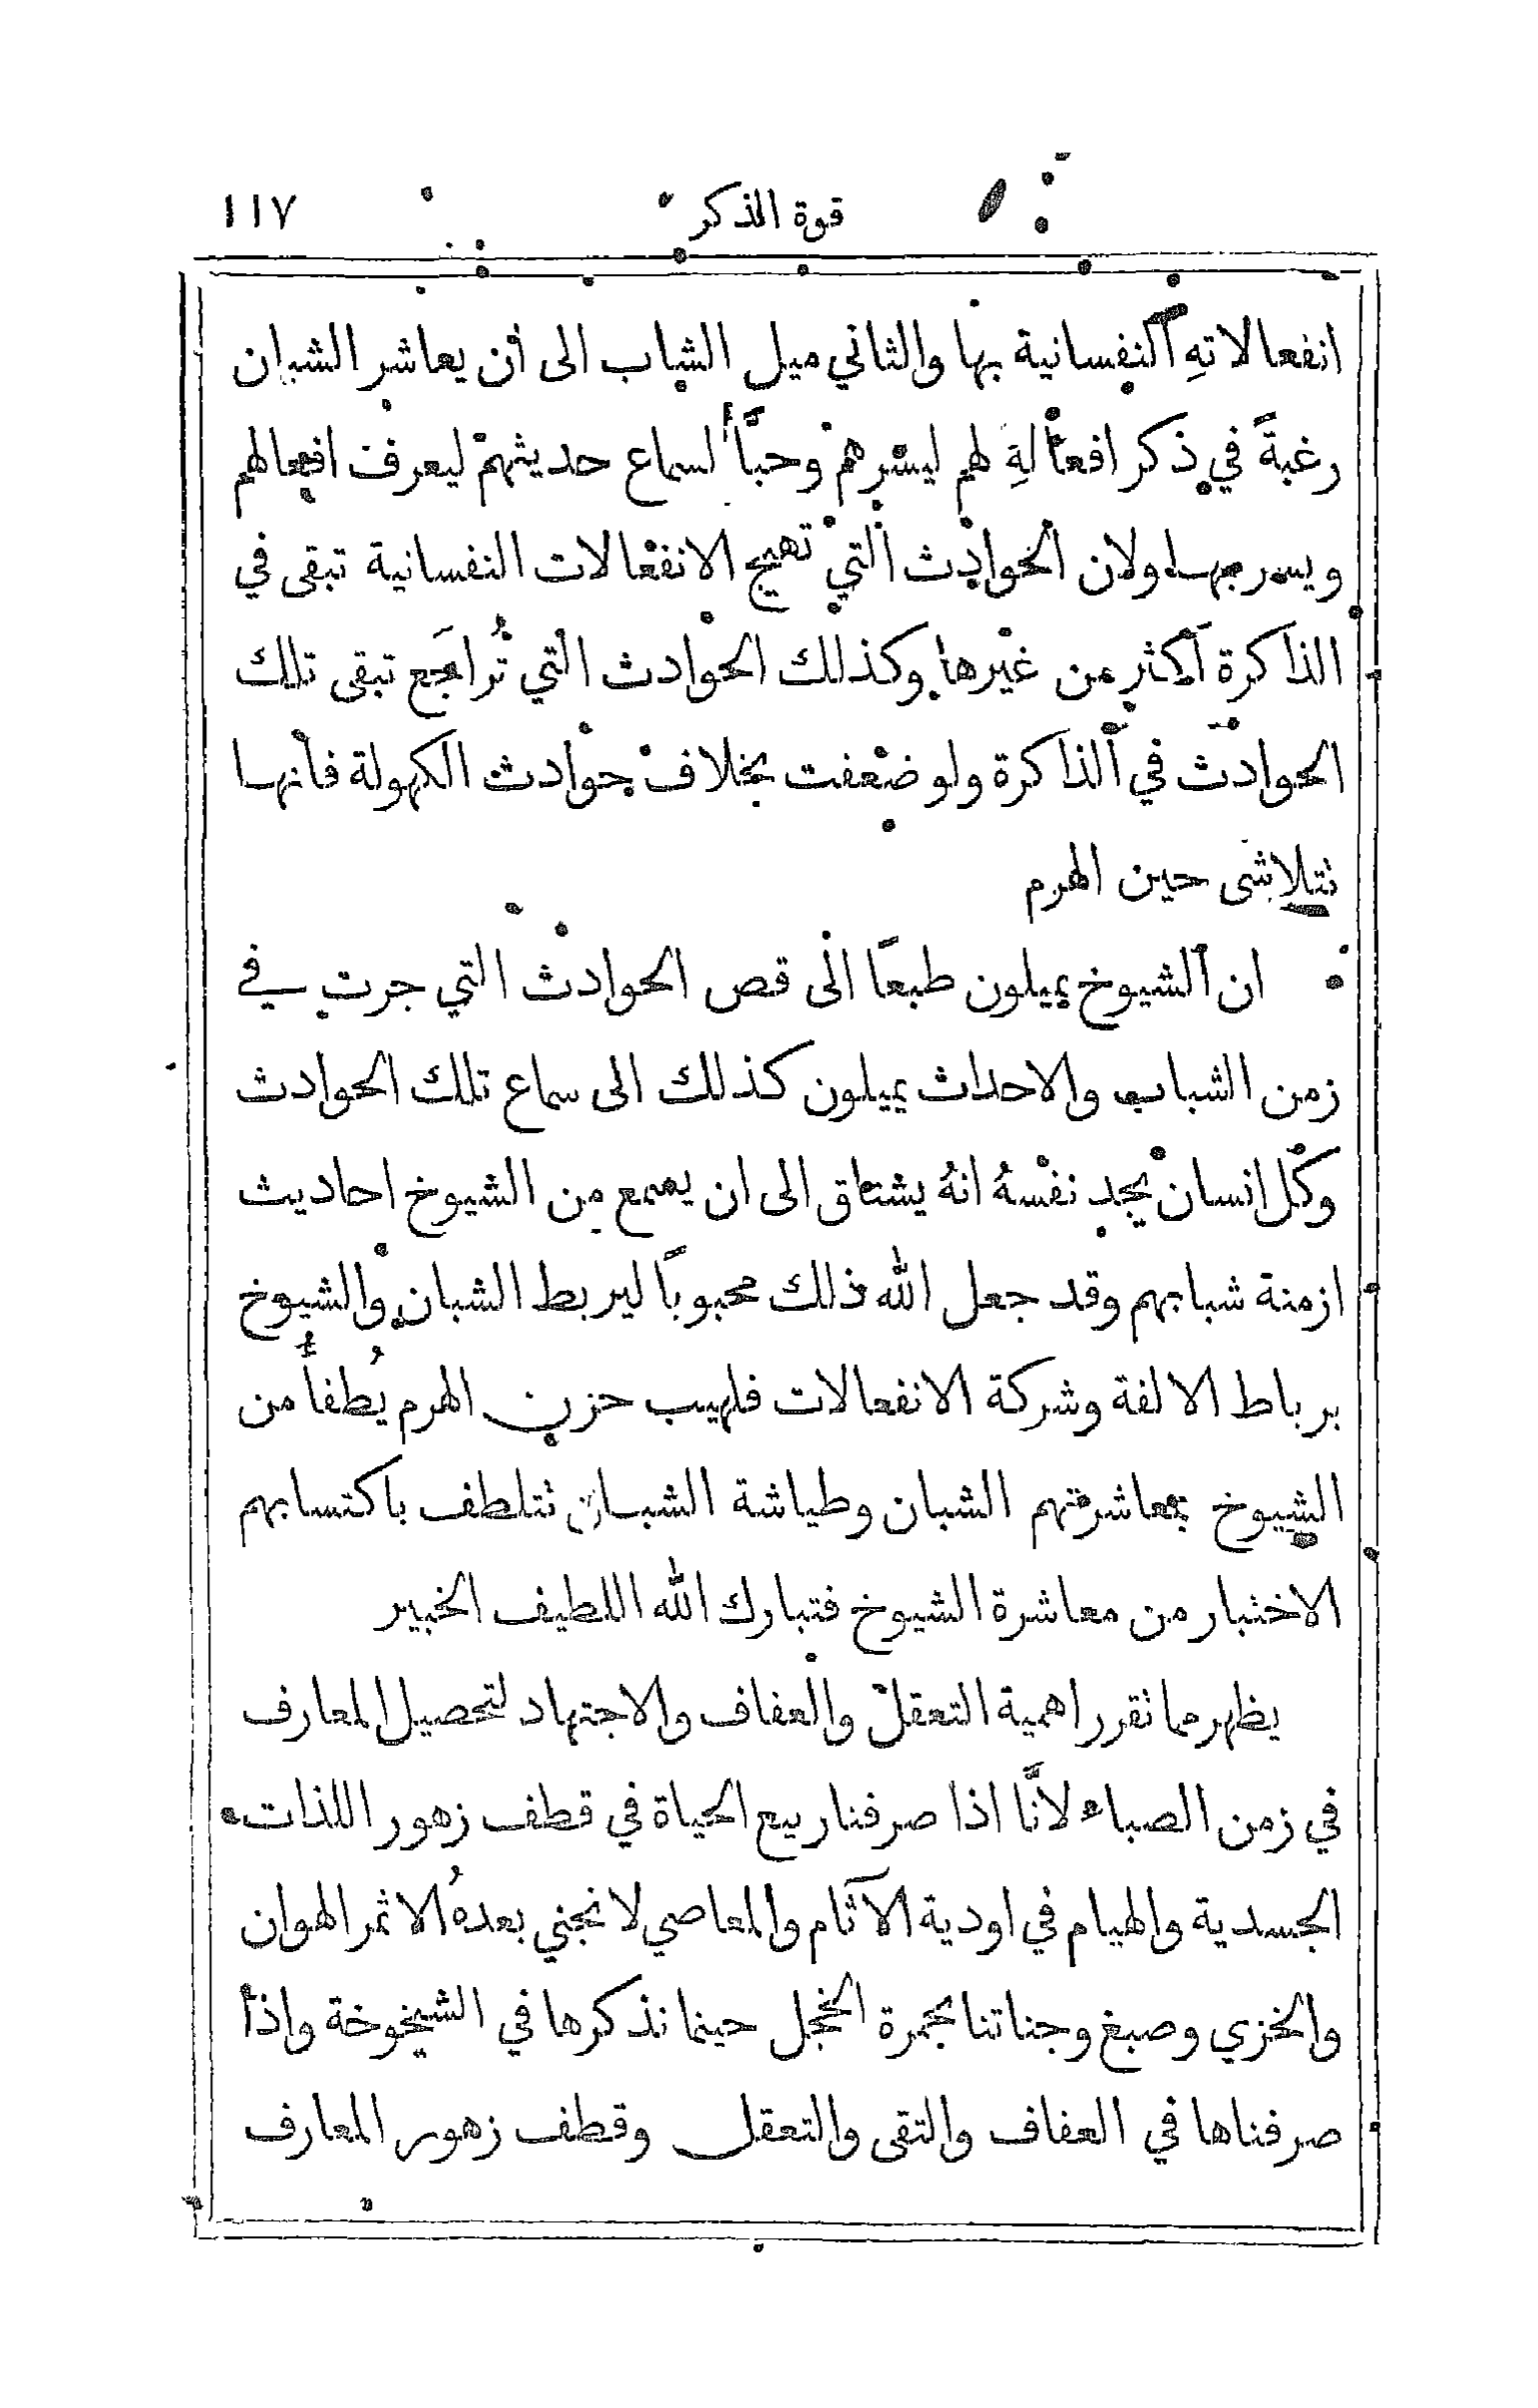 قوة الذكر ١١٧
انفعالاتهِ النفسانية بها والثاني ميل الشباب الى أن يعاشر الشبان
رغبةً في ذكر افعالهِ لهم ليسرهم وحبًّا لسماع حديثهم ليعرف افعالهم
ويسر بها ولان الحوادث التي تهيج الانفعالات النفسانية تبقى في
الذاكرة أكثر من غيرها وكذلك الحوادث التي تُراجَع تبقى تلك
الحوادث في الذاكرة ولو ضعفت بخلاف حوادث الكهولة فانها
نتلاشى حين الهرم
ان الشيوخ يميلون طبعًا الى قص الحوادث التي جرت في
زمن الشباب والاحداث يميلون كذلك الى سماع تلك الحوادث
وكل انسان يجد نفسهُ انهُ يشتاق الى ان يسمع من الشيوخ احاديث
ازمنة شبابهم وقد جعل الله ذلك محبوبًا ليربط الشبان والشيوخ
برباط الالفة وشركة الانفعالات فلهيب حزن الهرم يُطفأُ من
الشيوخ بمعاشرتهم الشبان وطياشة الشبان نتلطف باكتسابهم
الاختبار من معاشرة الشيوخ فتبارك الله اللطيف الخبير
يظهر مما نقرر اهمية التعقل والعفاف والاجتهاد لتحصيل المعارف
في زمن الصباء لانَّا اذا صرفنا ربيع الحياة في قطف زهور اللذات
الجسدية والهيام في اودية الآثام والمعاصي لا نجني بعدهُ الا ثمر الهوان
والخزي وصبغ وجناتنا بجمرة الخجل حينما نذكرها في الشيخوخة واذا
صرفناها في العفاف والتقى والتعقل وقطف زهور المعارف